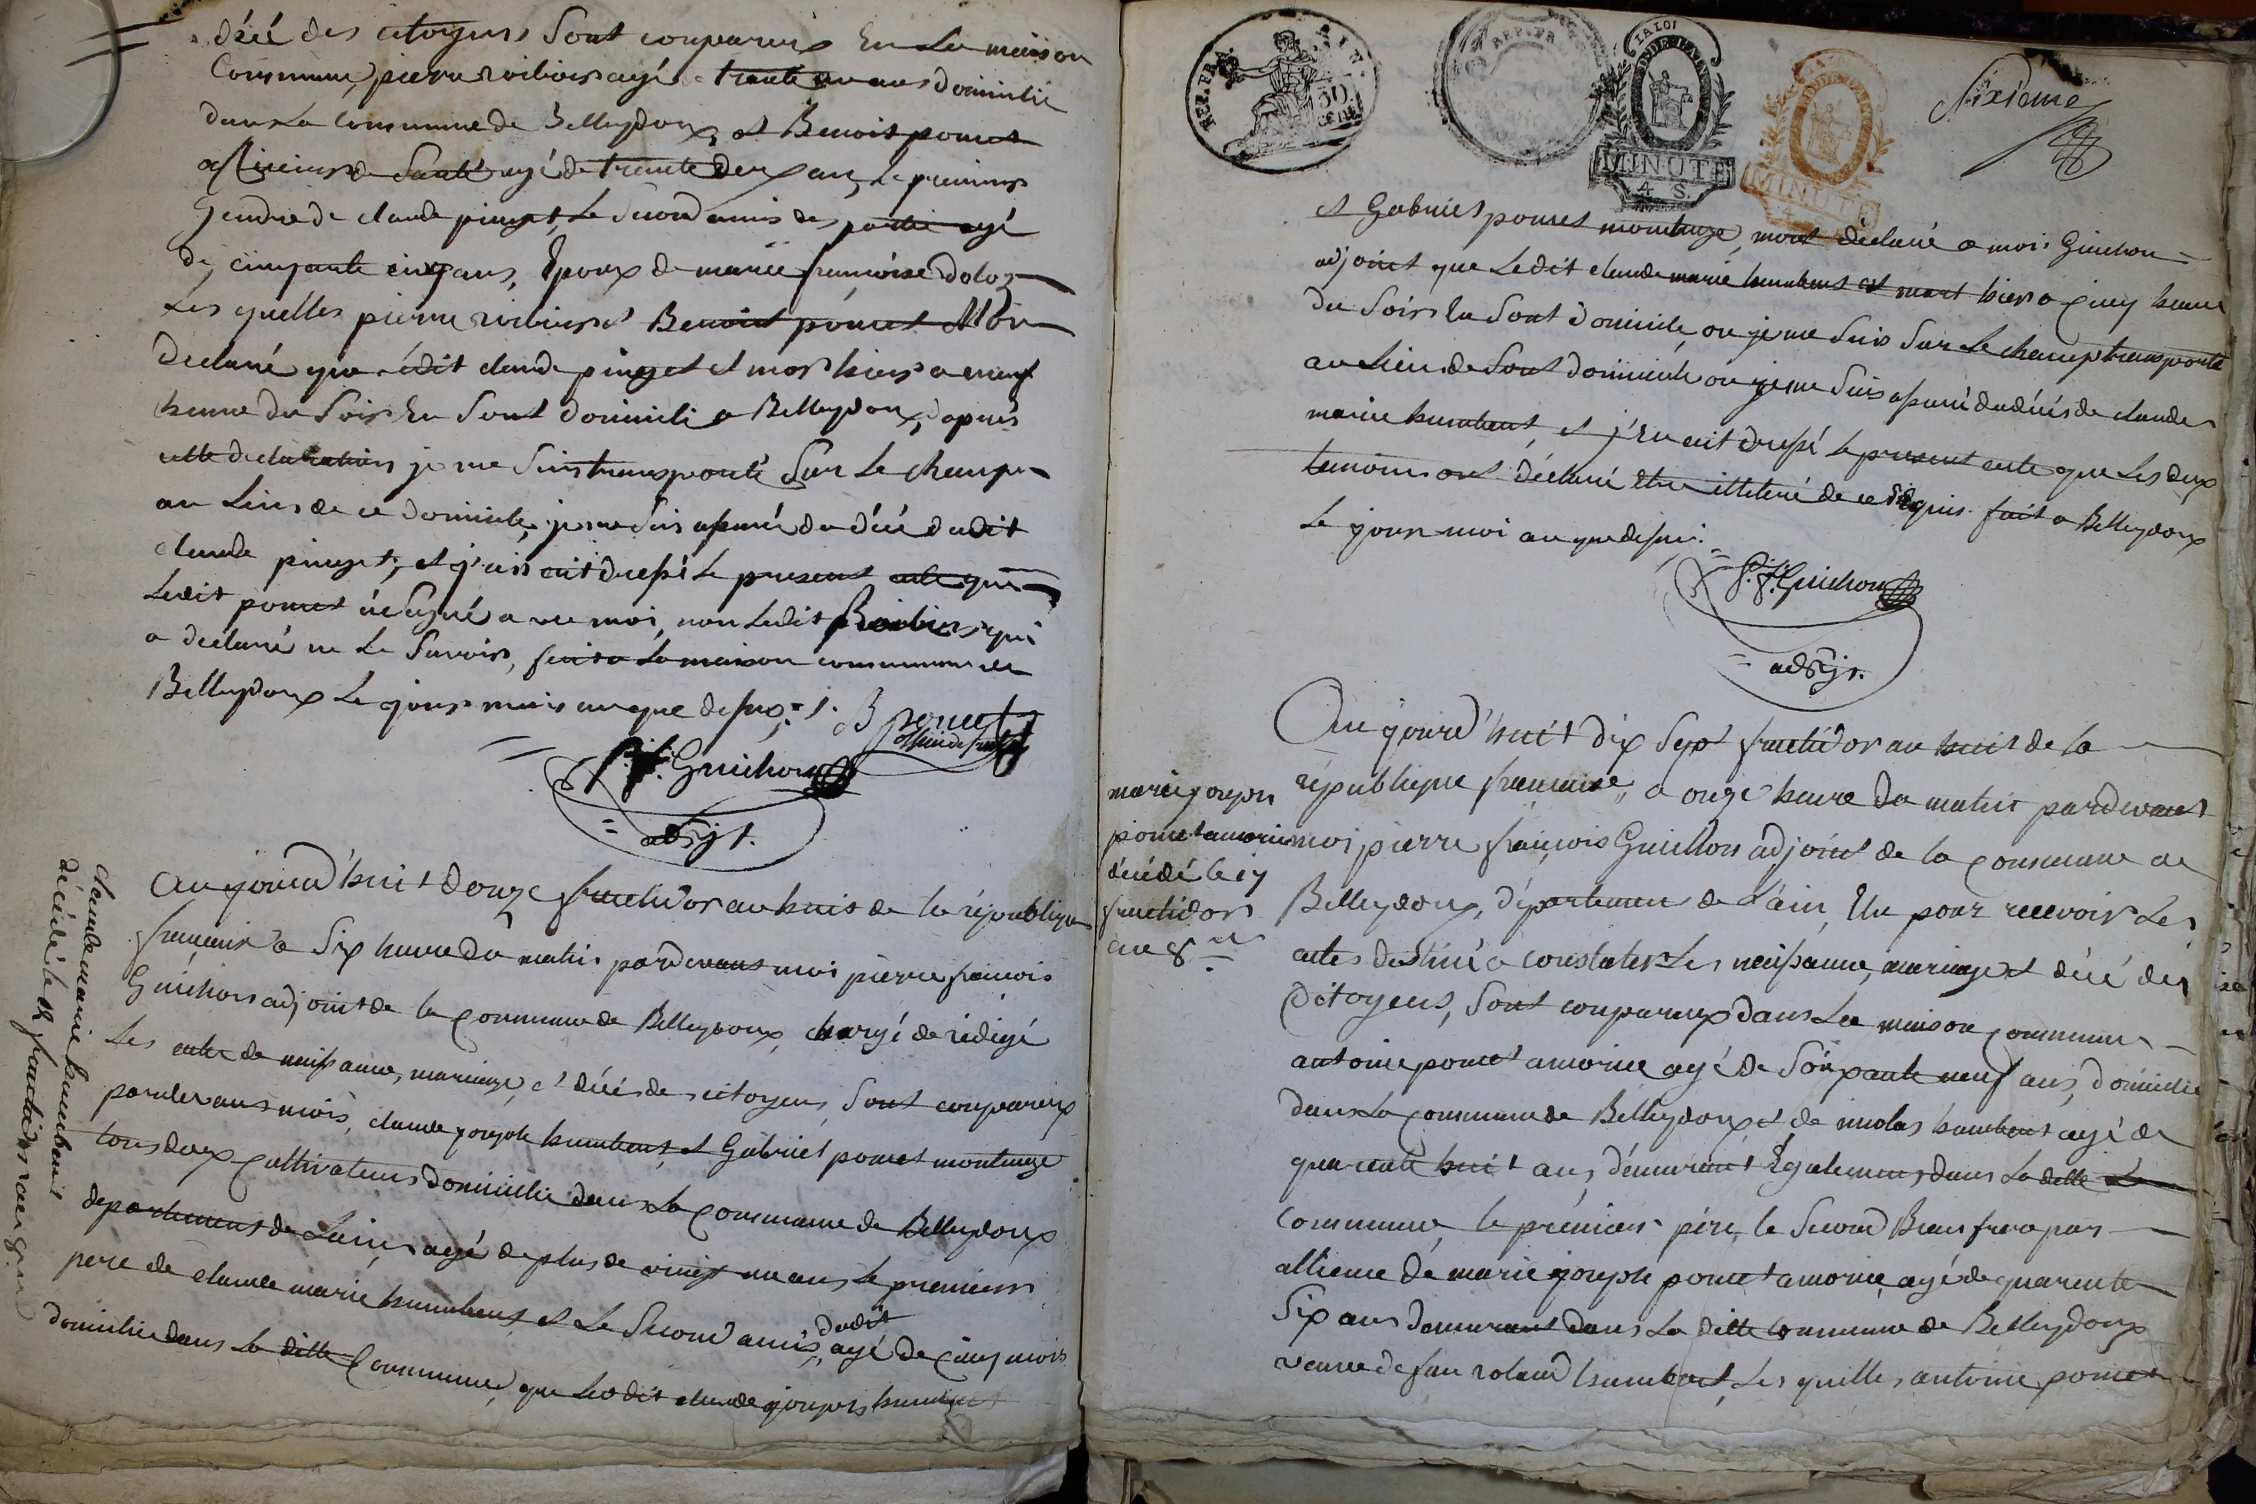 décé des citoyens Sont comparux En La maison
Commune, pierre roibier agé de trante un ans domicilié
dans La Commune de Belleydoux, et Benoit poncet
officiers de Santé agé de trente deux ans, Le premiers
Gendre de claude pinget, Le Second amis des partie agé
de cinquante cinq ans, Epoux de mariie françoise
Les quelles pierre roibier et Benoist poncet
declaré que ledit claude pinget et mor hiers a neuf
heure du Soirs En Sont domicili a Belleydoux, dapres
cette declaration je me Suis transporté Sur Le champ
au Lieus de ce domicile, je me Suis assuré du décé dudit
claude pinget, et j'ais ait dressé Le present acte que
Ledit poncet a Signé a vec moi, non Ledit Roibier qui
a declaré ne Le Savoirs, fait a La maison commune de
Belleydoux Le jour mois an que dessux ./.
B poncet
officier de santé
P. f. Guichon
adjt.
claude marie humbert
décédé le 12 fructidors an 8me
Au jourd'huit douze fructidor an huit de la républiquen
françaisse a Six heure du matin pardevans moi pierre françois
Guichons adjoint de la Commune de Belleydoux, chargé de rédigé
Les acte de naissance, mariage, et décé des citoyens, Sont comparux
pardevans mois, claude joseph humbert, et Gabriel poncet montange
tous deux Cultivateurs domicilie dans La Commune de Belleydoux
departement de Lain, agé de plus de vingt un ans Le premiers
pere de claude marie humbert, et Le Second amis dudit, agé de Cinq mois
domicilie dans La ditte Commune, que Les dit claude joseph humbert
REP. FRA.
50
CENT
REP. FRA
LA LOI
MINUTE
4 S.
MINUTE
Sixieme
et Gabriel poncet montange, mont déclaré a mois Guichon
adjoint que Ledit claude marie humbert est mort hiers a Cinq heure
du Soirs En Sont domicile, ou je me Suis Sur Le champ transporté
au Lieu de Sont domicile ou je me Suis assuré du décés de claude
marie humbert, et j'En ait dressé Le present acte que Les deux
temoins ont déclaré Etre illeteré de ce requis. fait a Belleydoux
Le jour moi an que dessus.
P. f. Guichon
adjt.
marie joseph
poncet amorin
décédé le 17
fructidors
an 8me
Au jourd'huit dix Sept fructidor an huit de la
république française, a onze heure du matin pardevant
moi pierre françois Guichon adjoint de la Commune de
Belleydoux, département de L'ain, Elu pour recevoir Les
actes destiné a constater Les naissance, mariage et décé des
Citoyens, Sont comparux dans La maison Commune
antoine poncet amorine agé de Soixante neuf ans, domicilie
dans La Commune de Belleydoux et de nicolas humbert agé de
quarente huit ans, démeurant Egalement dans La ditte
Commune, le prémiers pére, le Second Beau frere par
allience de marie joseph poncet amorine, agé de quarente
Six ans demeurant dans La ditte Commune de Belleydoux
veuve de feu roland humbert, Les quelles antoine poncet